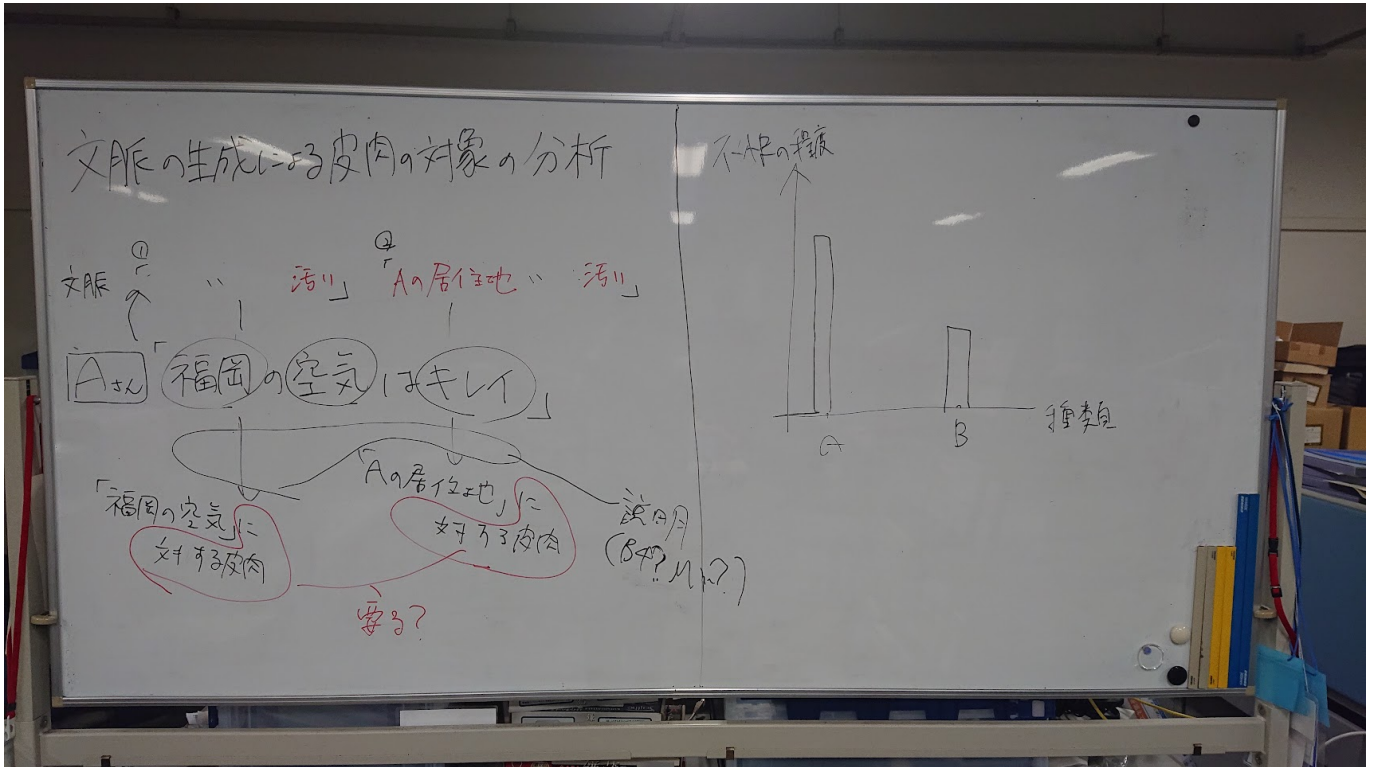 文脈の生成による皮肉の対象の分析
① ②
文脈 「 〃 汚い」 「Aの居住地〃 汚い」
Aさん 「福岡の空気はキレイ」
「福岡の空気」に
対する皮肉
「Aの居住地」に
対する皮肉
説明
要る?
の程度
A
B
種類